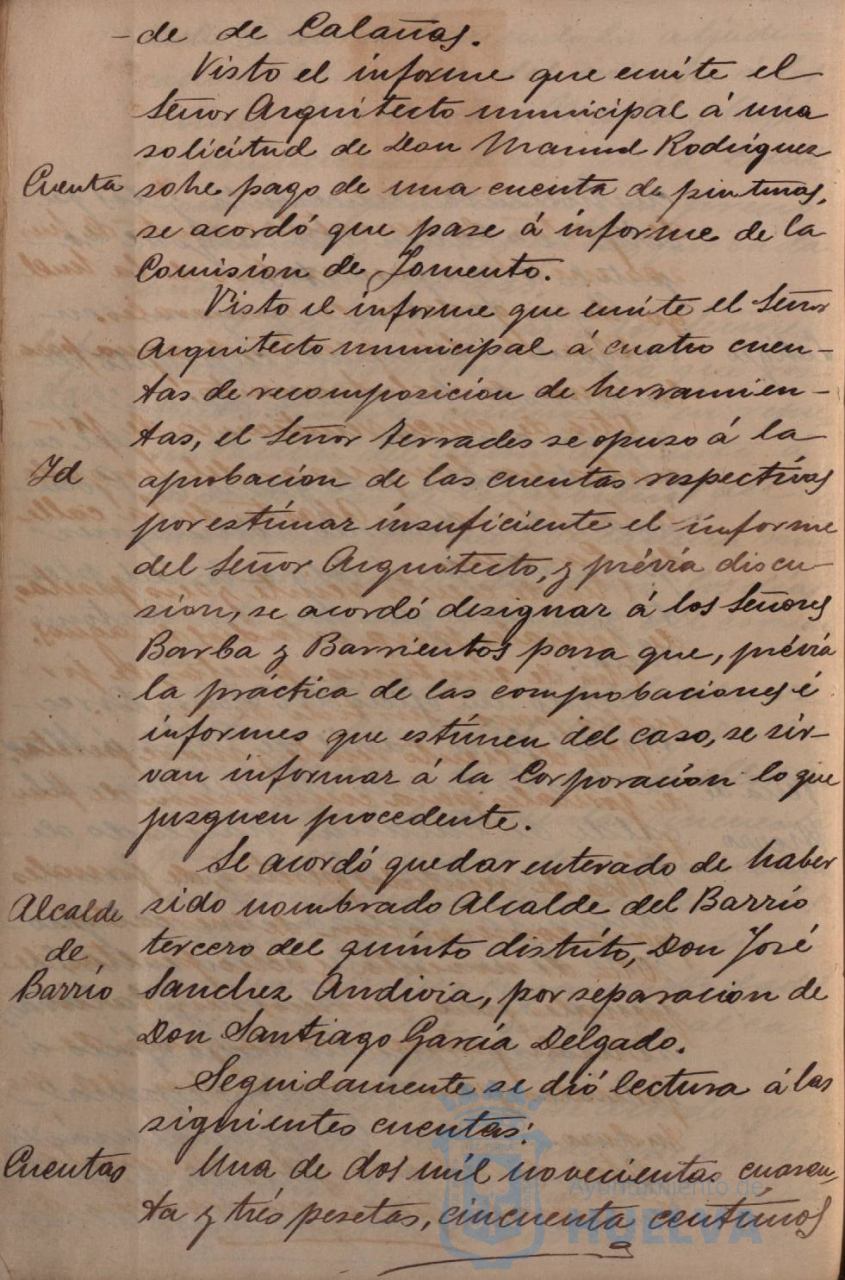 -de de Calañas.
Visto el informe que emite el
Señor Arquitecto municipal á una
solicitud de Don Manuel Rodríguez
Cuenta
sobre pago de una cuenta de pinturas,
se acordó que pase á informe de la
Comision de Fomento.
Visto el informe que emite el Señor
Arquitecto municipal á cuatro cuen-
tas de recomposicion de herramien-
tas, el Señor Terrades se opuso á la
Id
aprobacion de las cuentas respectivas
por estimar insuficiente el informe
del Señor Arquitecto, y prévia discu-
sion, se acordó designar á los Señores
Barba y Barrientos para que, prévia
la práctica de las comprobaciones é
informes que estimen del caso, se sir-
van informar á la Corporacion lo que
juzguen procedente.
Se acordó quedar enterado de haber
Alcalde
de
Barrio
sido nombrado Alcalde del Barrio
tercero del quinto distrito, Don José
Sanchez Andivia, por separacion de
Don Santiago García Delgado.
Seguidamente se dió lectura á las
siguientes cuentas:
Cuentas
Una de dos mil novecientas cuaren-
ta y trés pesetas, cincuenta centimos
Ayuntamiento de
HUELVA